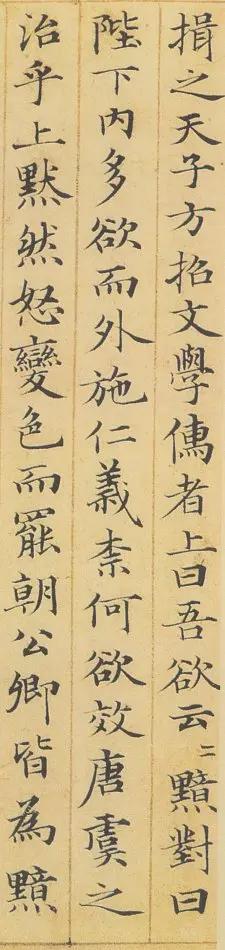 揖之天子方招文學儒者上曰吾欲云〻黯對曰
陛下內多欲而外施仁義柰何欲效唐虞之
治乎上默然怒變色而罷朝公卿皆為黯